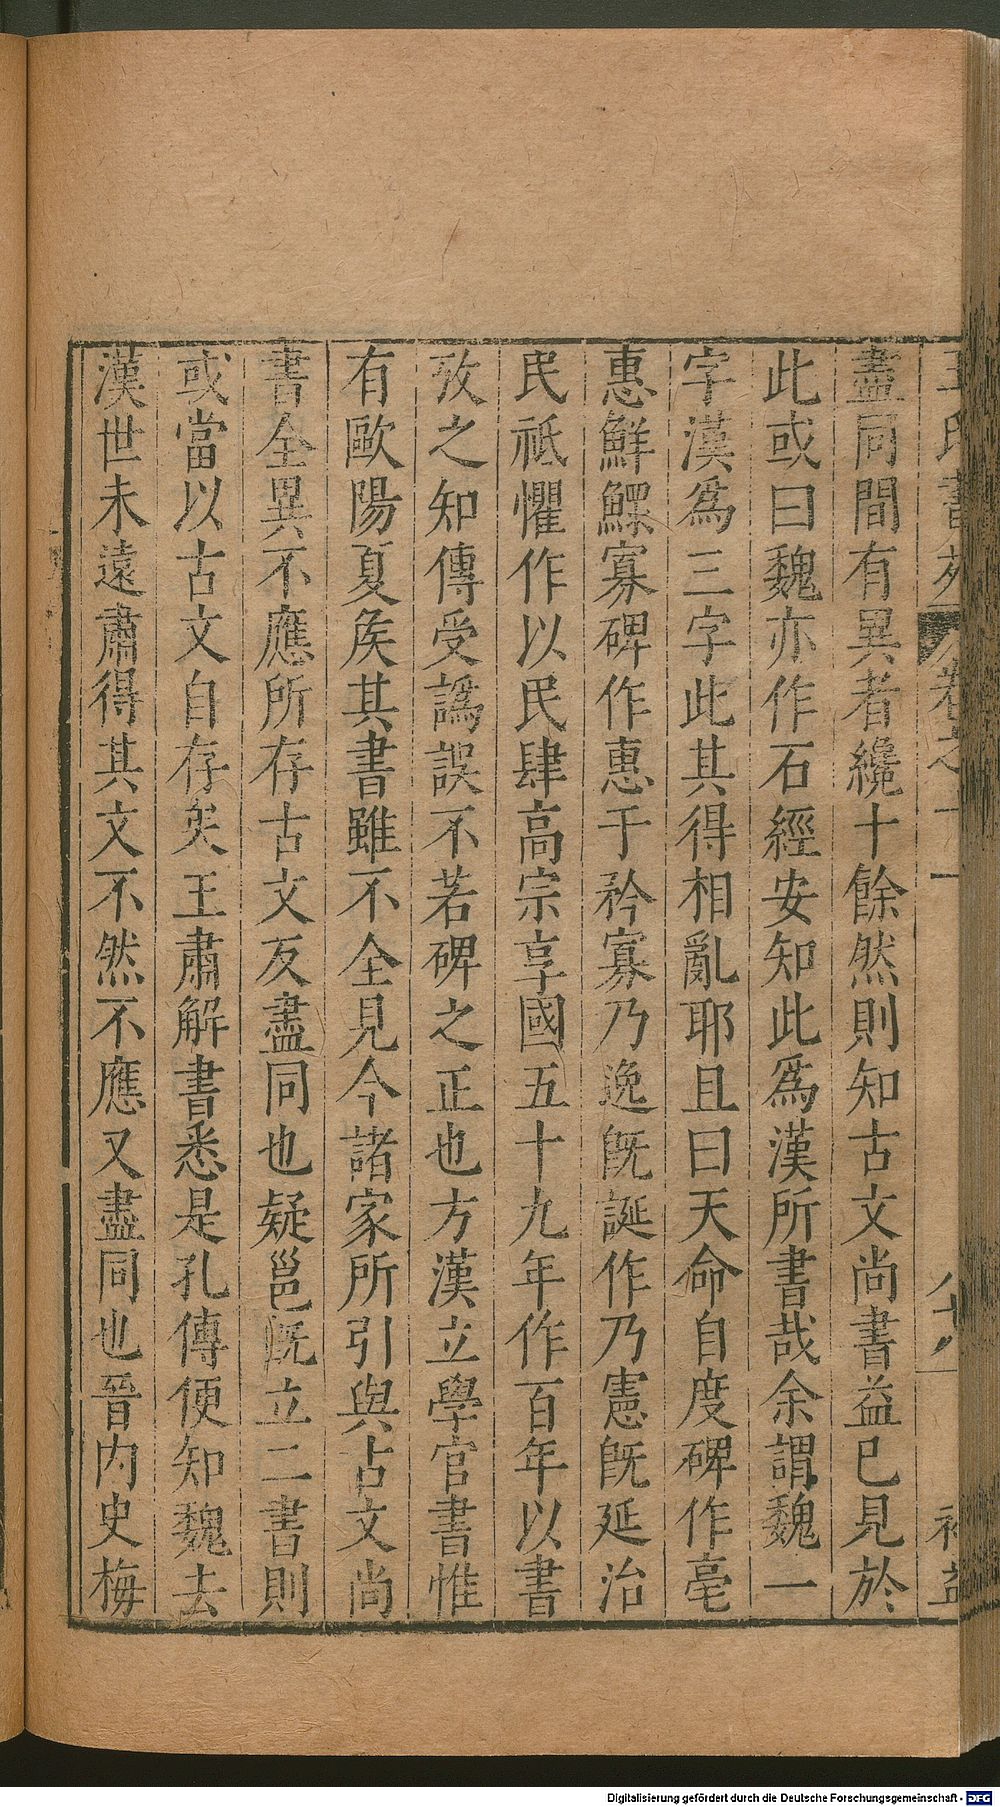 盡同間有異者纔十餘然則知古文尚書益已見於
此或曰魏亦作石經安知此爲漢所書哉余謂魏一
字漢爲三字此其得相亂耶且曰天命自度碑作亳
惠鮮鰥寡碑作惠于矜寡乃逸旣誕作乃憲旣延治
民祗懼作以民肆高宗享國五十九年作百年以書
攷之知傳受譌誤不若碑之正也方漢立學官書惟
有歐陽夏矦其書雖不全見今諸家所引與古文尚
書全異不應所存古文反盡同也疑邕旣立二書則
或當以古文自存矣王肅解書悉是孔傳便知魏去
漢世未遠肅得其文不然不應又盡同也晉內史梅
王氏書苑 卷之十一
Digitalisierung gefördert durch die Deutsche Forschungsgemeinschaft - DFG